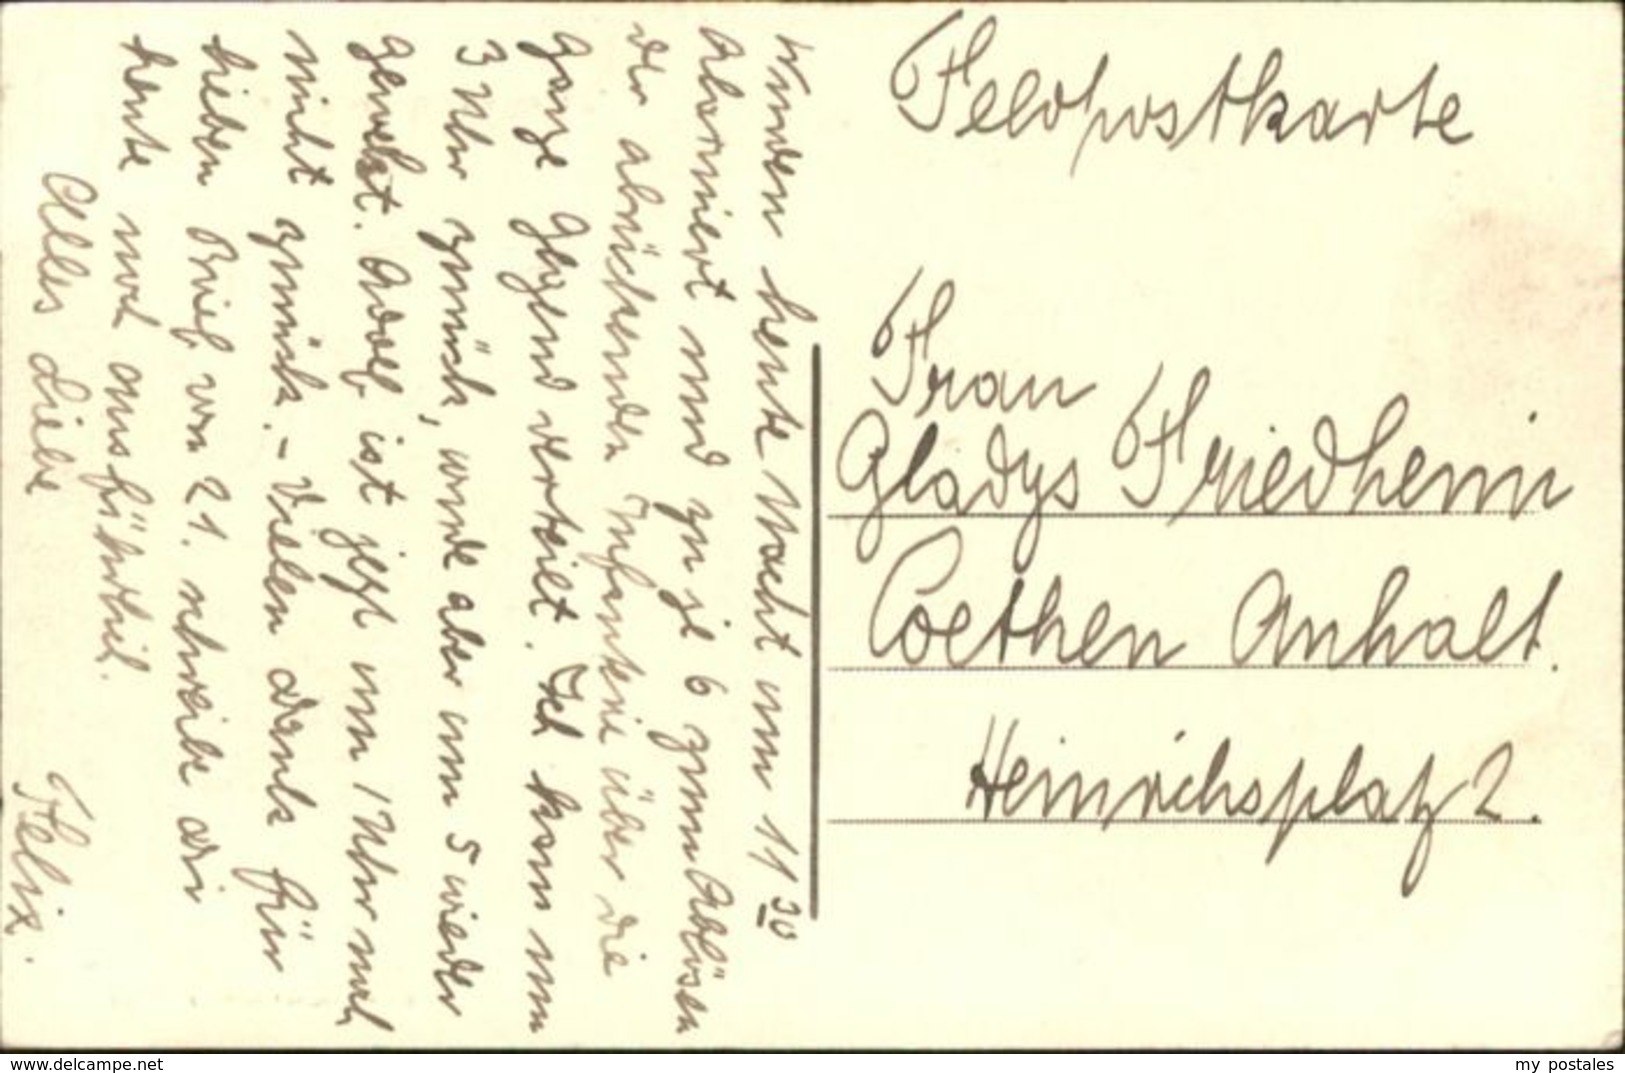 Feldpostkarte
Frau
Gladys Friedheim
Coethen Anhalt.
Heinrichsplatz 2.
Wurden heute Nacht um 11 30
alarmiert und zu je 6 zum Ablösen
der abrückenden Infanterie über die
ganze Gegend verteilt. Ich kam um
3 Uhr zurück, wurde aber um 5 wieder
geweckt. Adolf ist jetzt um 1 Uhr noch
nicht zurück. - Vielen Dank für
lieben Brief von 21. schreibe dir
heute noch ausführlich.
Alles Liebe
Felix.
delcampe.net
my postales